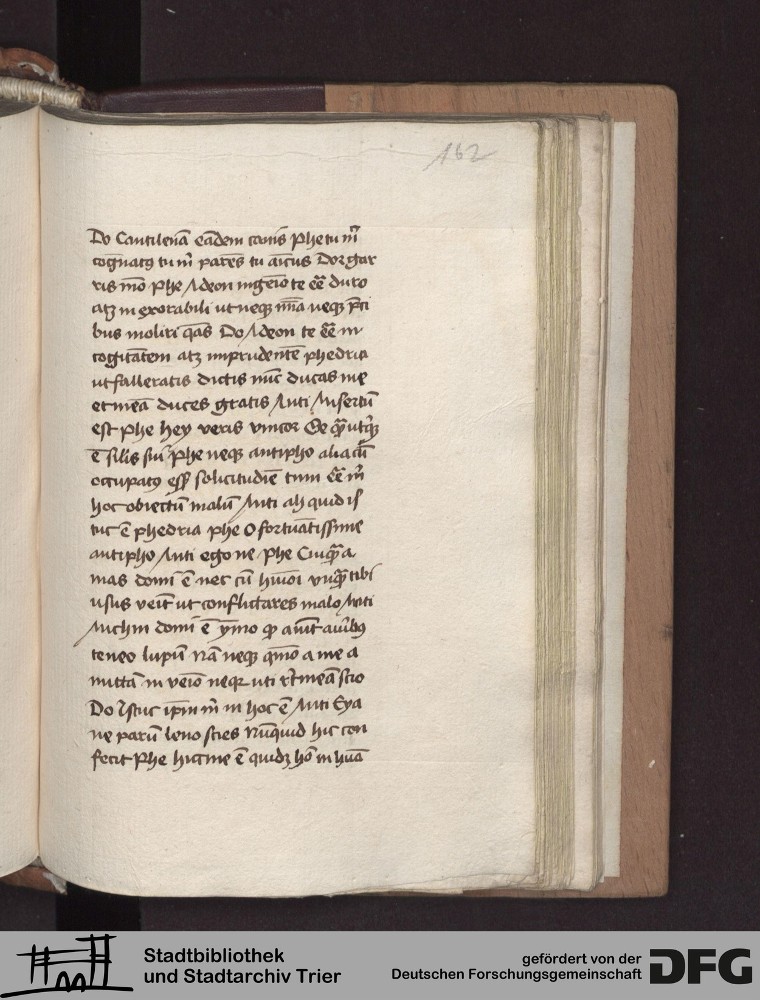 162
Do Cantilenā eādem canis Phe tu m̄
cognatꝯ tu m̄ pares tu amicus Do gar
ris mō Phe Adeon ingeīo te eē duro
atꝫ inexorabili ut neqꝫ m̄ia neqꝫ p̄ci
bus moliri q̄as Do Adeon te eē in
cogitātem atꝫ imprudentē phedria
ut falleratis dictis nūc ducas me
et meā duces gratis Anti Misertū
est Phe hey veris vincor Ge q̄ꝫ utqꝫ
ē silis sui Phe neqꝫ antipho alia cū
occupatꝯ eēt solicitudīe tum eē m̄
hoc obiectū malū Anti ah quid is
tuc ē phedria phe O fortunatissime
antipho Anti ego ne Phe Cui q̄ a
mas domi ē nec cū hui͡oi vnq̄ tibi
usus veīt ut conflictares malo Anti
Michin domi ē ymo qꝫ aiūt auribꝫ
teneo lupū Nā neqꝫ q͞mo a me a
mittā in veīo neqꝫ uti ret͞ineā scio
Do Istuc ip̄m m̄ in hoc ē Anti Eya
ne parū leno sies Nūquid hic con
fecit Phe hiccine ē quidꝫ hō in hūa
Stadtbibliothek
und Stadtarchiv Trier
gefördert von der
Deutschen Forschungsgemeinschaft
DFG